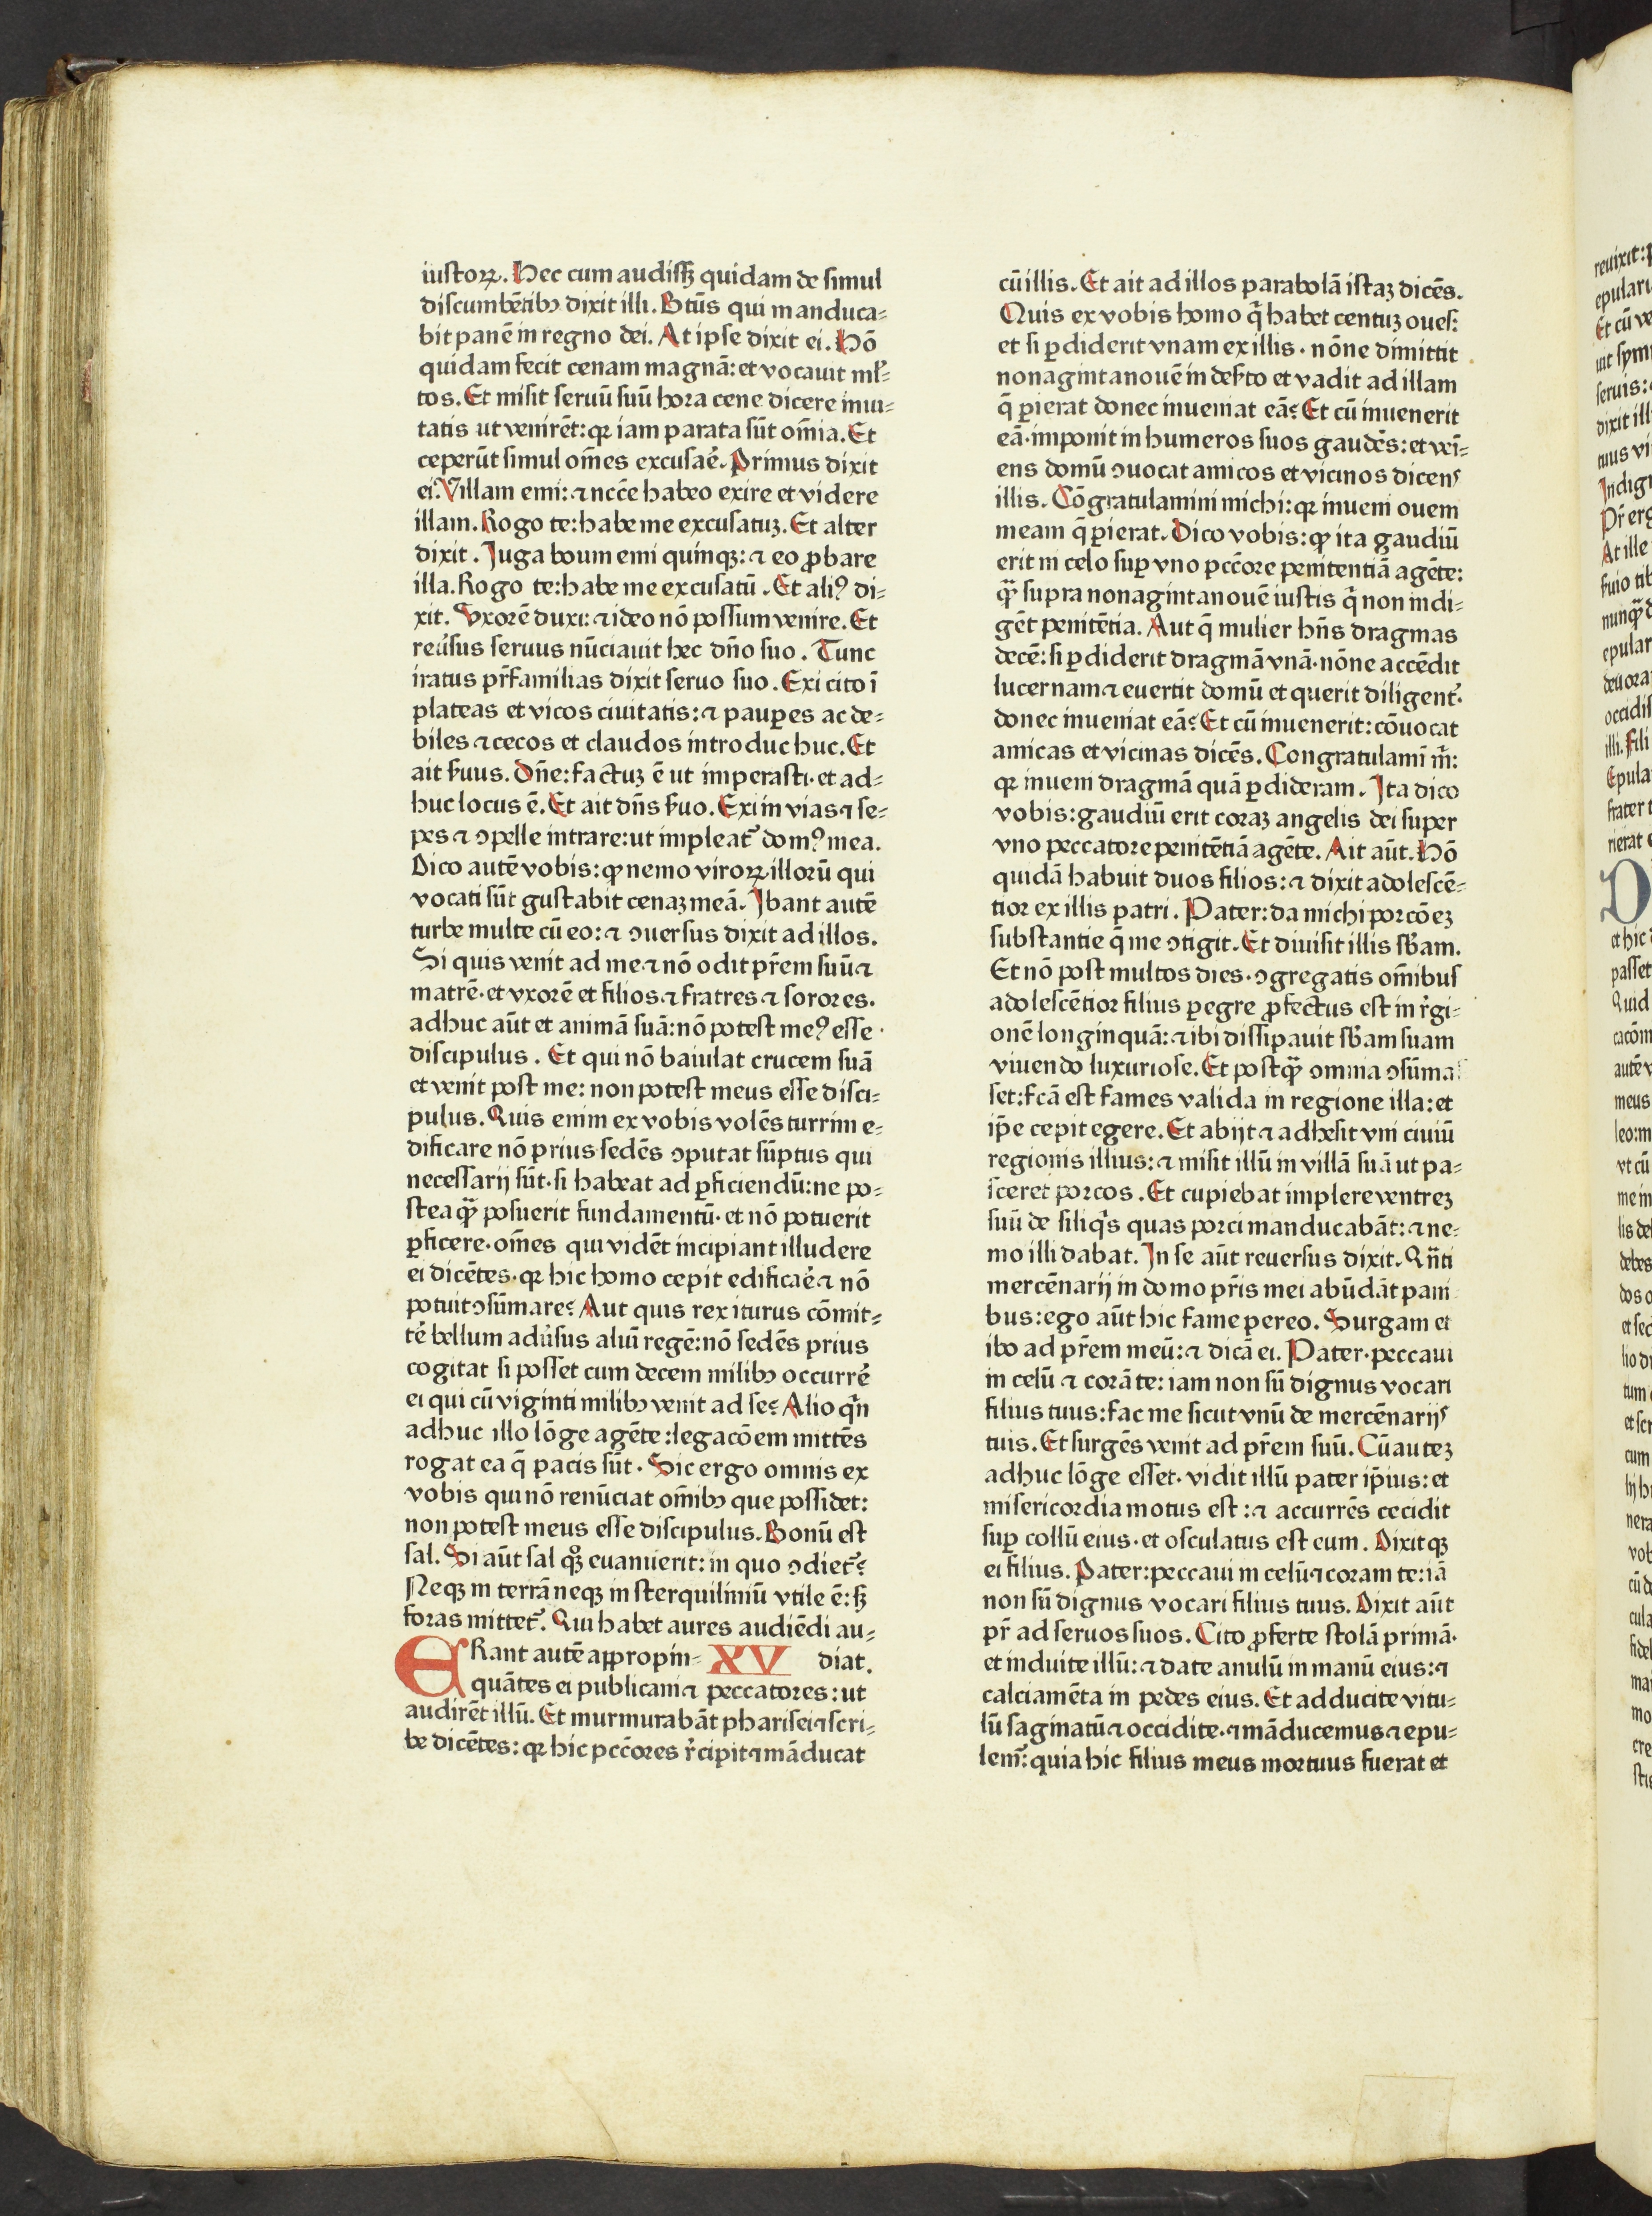 iustoꝝ. Hec cum audisſꝫ quidam de simul
discumbētibꝰ dixit illi. Btūs qui manduca⸗
bit panē in regno dei. At ipse dixit ei. Hō
quidam fecit cenam magnā: et vocauit ml̓⸗
tos. Et misit seruū suū hora cene dicere inui⸗
tatis ut venirēt: qꝛ iam parata sūt om̄ia. Et
ceperūt simul om̄es excusae᷑. Primus dixit
ei. Villam emi: ⁊ nccē habeo exire et videre
illam. Rogo te: habe me excusatuꝫ. Et alter
dixit. Juga boum emi quinqꝫ: ⁊ eo ꝓbare
illa. Rogo te: habe me excusatū. Et aliꝰ di⸗
xit. Vxorē duxi: ⁊ ideo nō possum venire. Et
reu᷑sus seruus nūciauit hec dn̄o suo. Tunc
iratus pr̄familias dixit seruo suo. Exi cito ī
plateas et vicos ciuitatis: ⁊ pauꝑes ac de⸗
biles ⁊ cecos et claudos introduc huc. Et
ait s̓uus. Dn̄e: factuꝫ ē ut imperasti· et ad⸗
huc locus ē. Et ait dn̄s s̓uo. Exi in vias ⁊ se⸗
pes ⁊ ꝯpelle intrare: ut impleat᷑ domꝰ mea.
Dico autē vobis: ꝙ nemo viroꝝ illorū qui
vocati sūt gustabit cenaꝫ meā. Jbant autē
turbe multe cū eo: ⁊ ꝯuersus dixit ad illos.
Si quis venit ad me ⁊ nō odit pr̄em suū ⁊
matrē· et vxorē et filios ⁊ fratres ⁊ sorores·
adhuc aūt et animā suā: nō potest meꝰ esse·
discipulus. Et qui nō baiulat crucem suā
et venit post me: non potest meus esse disci⸗
pulus. Quis enim ex vobis volēs turrim e⸗
dificare nō prius sedēs ꝯputat sūptus qui
necessarij sūt· si habeat ad ꝑficiendū: ne po⸗
stea qꝫ̄ posuerit fundamentū· et nō potuerit
ꝑficere· om̄es qui vidēt incipiant illudere
ei dicētes· qꝛ hic homo cepit edificae᷑ ⁊ nō
potuit ꝯsūmare? Aut quis rex iturus cōmit⸗
te᷑ bellum adu᷑sus aliū regē: nō sedēs prius
cogitat si posset cum decem milibꝰ occurre᷑
ei qui cū viginti milibꝰ venit ad se? Alio qn̄
adhuc illo lōge agēte: legacōem mittēs
rogat ea q̄ pacis sūt. Sic ergo omnis ex
vobis qui nō renūciat om̄ibꝰ que possidet:
non potest meus esse discipulus. Bonū est
sal. Si aūt sal qꝫ euanuerit: in quo ꝯdiet᷑?
Neqꝫ in terrā neqꝫ in sterquiliniū vtile ē: sꝫ
foras mittet᷑. Qui habet aures audiēdi au⸗
ERant autē appropin⸗ XV diat.
quātes ei publicani ⁊ peccatores: ut
audirēt illū. Et murmurabāt pharisei ⁊ scri⸗
be dicētes: qꝛ hic pccōres r᷑cipit ⁊ māducat
cū illis. Et ait ad illos parabolā istaꝫ dicēs.
Quis ex vobis homo q̄ habet centuꝫ oues:
et si ꝑdiderit vnam ex illis· nōne dimittit
nonagintanouē in des̓to et vadit ad illam
q̄ ꝑierat donec inueniat eā? Et cū inuenerit
eā· imponit in humeros suos gaudēs: et veī⸗
ens domū ꝯuocat amicos et vicinos dicens
illis. Cōgratulamini michi: qꝛ inueni ouem
meam q̄ ꝑierat. Dico vobis: ꝙ ita gaudiū
erit in celo suꝑ vno pccōre penitentiā agēte:
qꝫ̄ supra nonagintanouē iustis q̄ non indi⸗
gēt penitētia. Aut q̄ mulier hn̄s dragmas
decē: si ꝑdiderit dragmā vnā· nōne accēdit
lucernam ⁊ euertit domū et querit diligent᷑·
donec inueniat eā? Et cū inuenerit: cōuocat
amicas et vicinas dicēs. Congratulamī m̄:
qꝛ inueni dragmā quā ꝑdideram. Jta dico
vobis: gaudiū erit coraꝫ angelis dei super
vno peccatore penitētiā agēte. Ait aūt. Hō
quidā habuit duos filios: ⁊ dixit adolescē⸗
tior ex illis patri. Pater: da michi porcōeꝫ
substantie q̄ me ꝯtigit. Et diuisit illis sb̄am.
Et nō post multos dies· ꝯgregatis om̄ibus
adolescētior filius ꝑegre ꝓfectus est in r᷑gi⸗
onē longinquā: ⁊ ibi dissipauit sb̄am suam
viuendo luxuriose. Et postqꝫ̄ omnia ꝯsūmas⸗
set: fcā est fames valida in regione illa: et
ip̄e cepit egere. Et abijt ⁊ adhesit vni ciuiū
regionis illius: ⁊ misit illū in villā suā ut pa⸗
sceret porcos. Et cupiebat implere ventreꝫ
suū de siliq̄s quas porci manducabāt: ⁊ ne⸗
mo illi dabat. Jn se aūt reuersus dixit. Qn̄ti
mercēnarij in domo pr̄is mei abūdāt pani
bus: ego aūt hic fame pereo. Surgam et
ibo ad pr̄em meū: ⁊ dicā ei. Pater· peccaui
in celū ⁊ corā te: iam non sū dignus vocari
filius tuus: fac me sicut vnū de mercēnarijs
tuis. Et surgēs venit ad pr̄em suū. Cū auteꝫ
adhuc lōge esset· vidit illū pater ip̄ius: et
misericordia motus est: ⁊ accurrēs cecidit
suꝑ collū eius· et osculatus est eum. Dixitqꝫ
ei filius. Pater: peccaui in celū ⁊ coram te: iā
non sū dignus vocari filius tuus. Dixit aūt
pr̄ ad seruos suos. Cito ꝓferte stolā primā·
et induite illū: ⁊ date anulū in manū eius: ⁊
calciamēta in pedes eius. Et adducite vitu⸗
lū saginatū ⁊ occidite· ⁊ māducemus ⁊ epu⸗
lem᷑: quia hic filius meus mortuus fuerat et